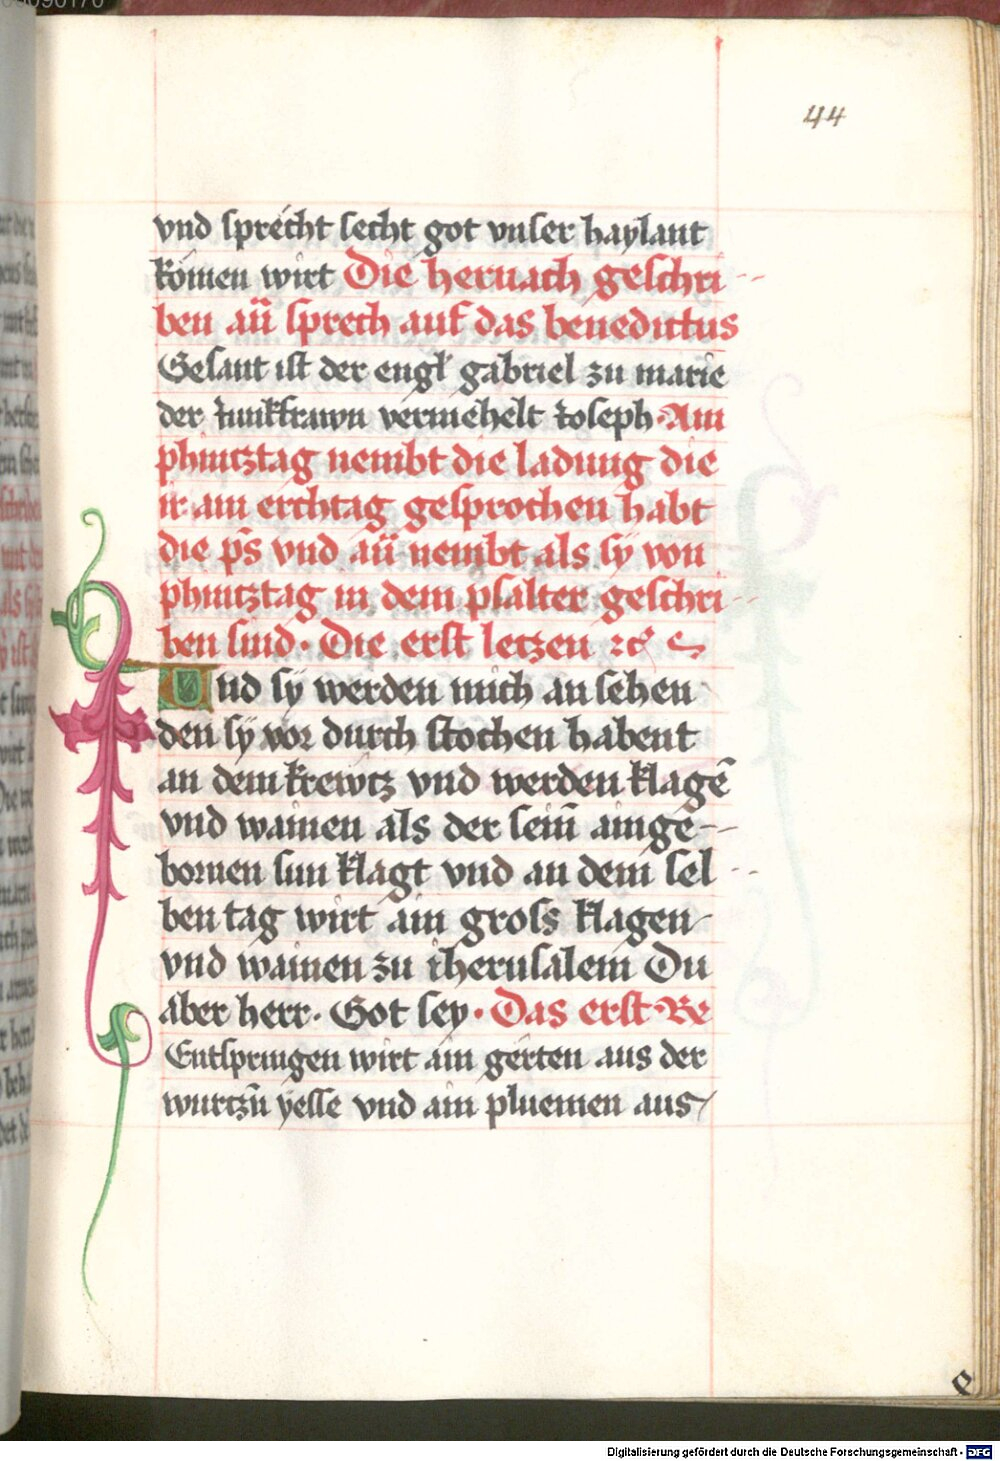 44
vnd sprecht secht got vnser haylant
kömen wirt Die hernach geschri-
ben añ sprech auf das benedictus
Gesant ist der engł gabriel zu marie
der iunkfrawn vermëhelt ioseph · Am
phincztag nembt die ladung die
ir am erchtag gesprochen habt
die ps̄ vnd añ nembt als sÿ von
phincztag in dem psalter geschri-
ben sind · Die erst leczen ⁊c̄
Vnd sÿ werden mich an sehen
den sÿ vor durch stochen habent
an dem krewtz vnd werden klagē
vnd wainen als der sein̄ ainge-
bornen sun klagt vnd an dem sel-
ben tag wirt ain gross klagen
vnd wainen zu iherusalem Du
aber herr · Got sey · Das erst Re
Entspringen wirt ain gerten aus der
wurczn̄ yesse vnd ain pluemen aus
Digitalisierung gefördert durch die Deutsche Forschungsgemeinschaft - DFG